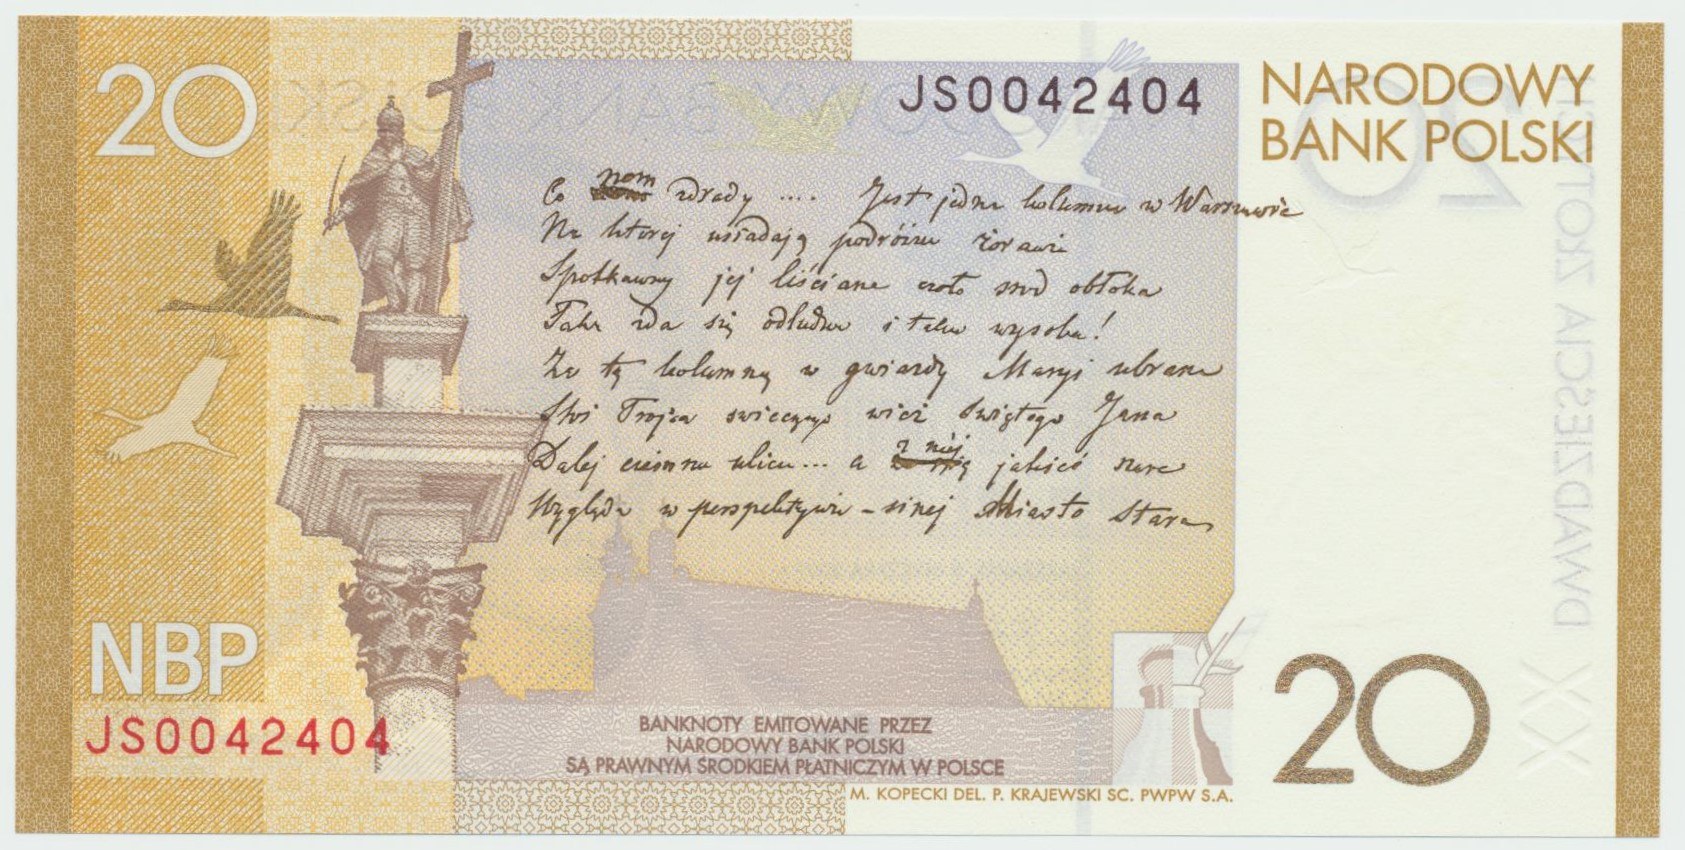 20
JS0042404
NARODOWY
BANK POLSKI
Co nam zdrady .... Jest jedna kolumna w Warszawie
Na której usiadają podróżne żorawie
Spotkawszy jej liściane czoło śród obłoka
Taka zda się odludna i taka wysoka!
Za tą kolumną w gwiazdy Maryi ubrana
Stoi Trójca wież świętego Jana
Dalej ciemna ulica... a z niej jakieś szare
Wygląda w perspektywie – sinej Miasto Stare
NBP
JS0042404
BANKNOTY EMITOWANE PRZEZ
NARODOWY BANK POLSKI
SĄ PRAWNYM ŚRODKIEM PŁATNICZYM W POLSCE
M. KOPECKI DEL. P. KRAJEWSKI SC. PWPW S.A.
20